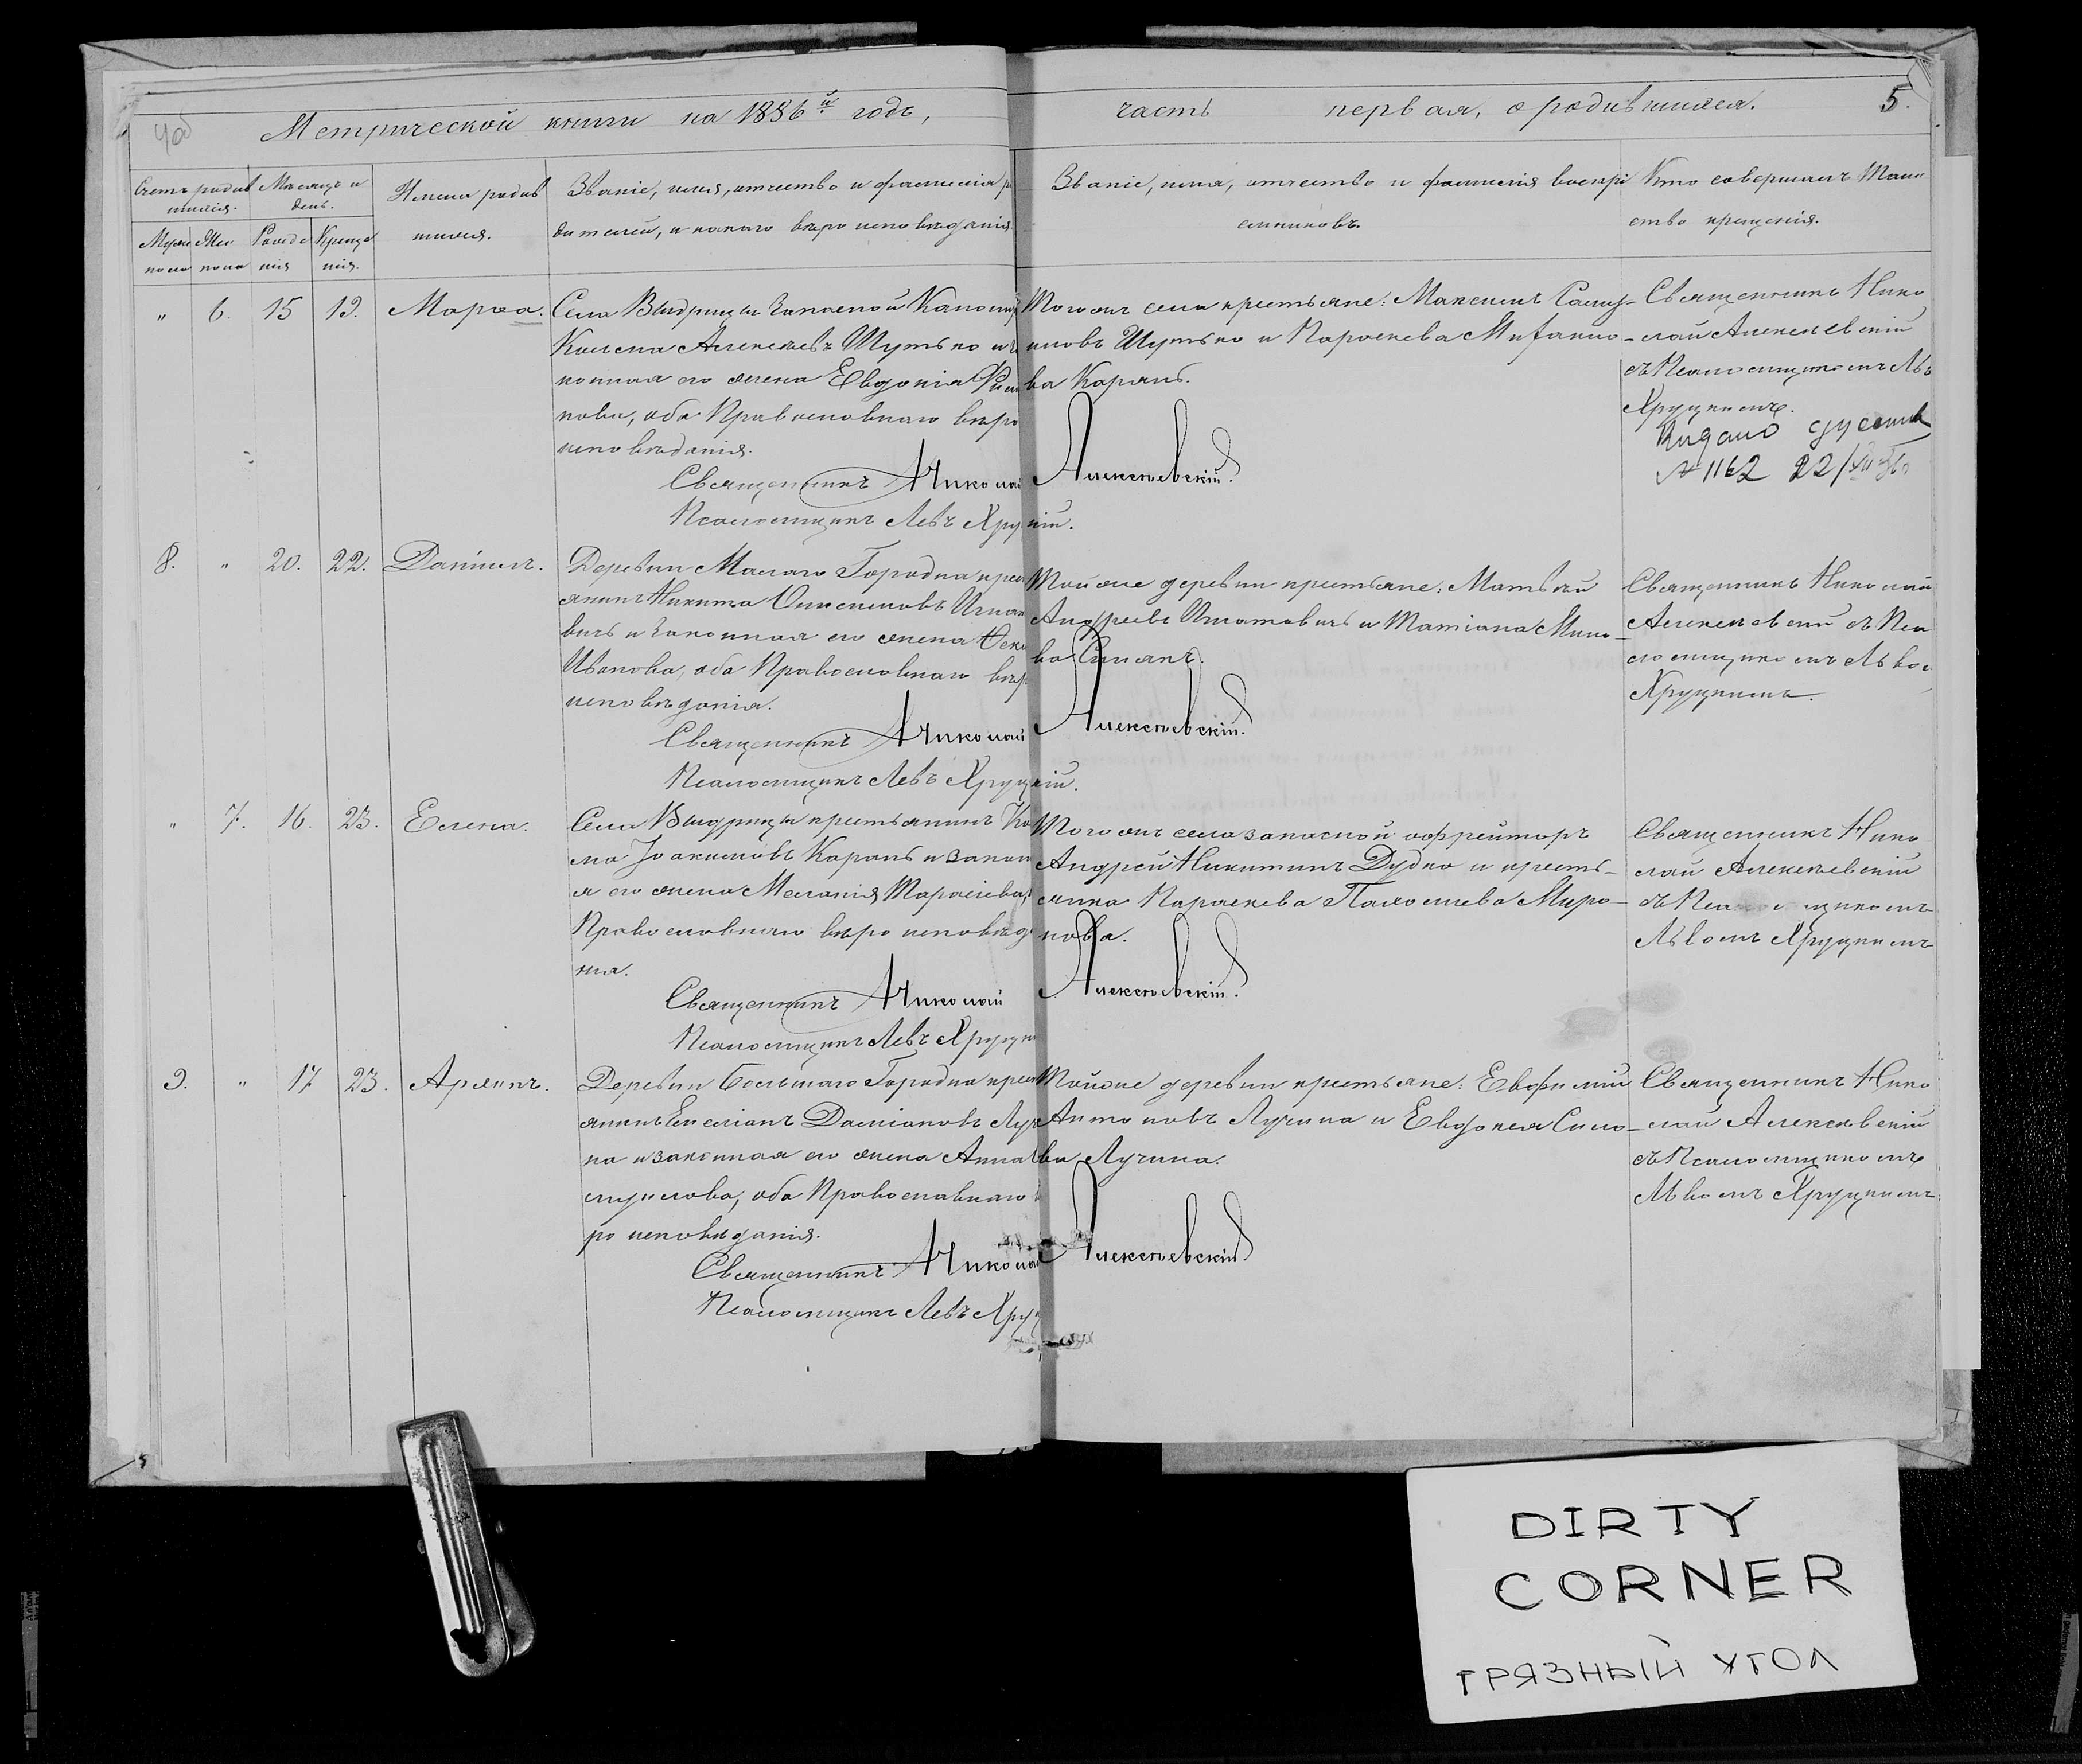 Метрической книги на 1886й годъ,
часть первая, о родившихся.
5.
Счетъ родив
шихся.
Мѣсяцъ и
день.
Имена родив
шихся.
Званіе, имя, отчество и фамилія ро
дителей, и какого вѣроисповѣданія.
Муже
ска
Жен
ска
Рожде
нія
Креще
нія.
Званіе, имя, отчество и фамилія воспрі
емниковъ.
Кто совершалъ Таин
ство крещенія.
" 6. 15 19. Марѳа.
Села Выдрицы запасной
Алексѣевъ Шутько и
конная его жена Евдокія
нова, оба Православнаго вѣро
исповѣданія.
Священникъ Николай Алексѣевскій.
Псаломщикъ Левъ Хруцкій.
Того же села крестьяне: Максимъ
Шутько и Параскева
ва Карань.
Священникъ Нико
лай Алексѣевскій
съ Псаломщикомъ Льв
Хруцкимъ.
№ 1162 22/
8. " 20. 22. Даніилъ.
Деревни Малаго Городна крес
янинъ Никита Онисимовъ Игнат
вичъ и законная его жена
Иванова, оба Православнаго вѣр
исповѣданія.
Священникъ Николай Алексѣевскій.
Псаломщикъ Левъ Хруцкій.
Той же деревни крестьяне: Матвѣй
Андреевъ Игнатовичъ и Татіана
ва
Священникъ Николай
Алексѣевскій съ Пса
ломщикомъ Льво
Хруцкимъ.
" 7. 16. 23. Елена.
Села Выдрицы крестьянинъ
ма Іоакимовъ Карань и закон
я его жена Меланія Тарасіева,
Православнаго вѣроисповѣда
нія.
Священникъ Николай Алексѣевскій.
Псаломщикъ Левъ Хруцк
Того же села запасной ефрейторъ
Андрей Никитинъ Дудко и кресть-
янка Параскева Пахоміева Миро-
нова.
Священникъ Нико
лай Алексѣевскій
съ Псаломщикомъ
Львомъ Хруцкимъ
9. " 17 23. Арянъ.
Деревни Большаго Городна крест
янинъ Емеліанъ Даміановъ Лучи
на и законная его жена Анна
оба Православнаго вѣ
роисповѣданія.
Священникъ Николай Алексѣевскій
Псаломщикъ Левъ Хруц
Той же деревни крестьяне: Евфимій
Антоновъ Лучина и Евдокія
ва Лучина.
Священникъ Нико
лай Алексѣевскій
съ Псаломщикомъ
Львомъ Хруцкимъ
DIRTY
CORNER
ГРЯЗНЫЙ УГОЛ